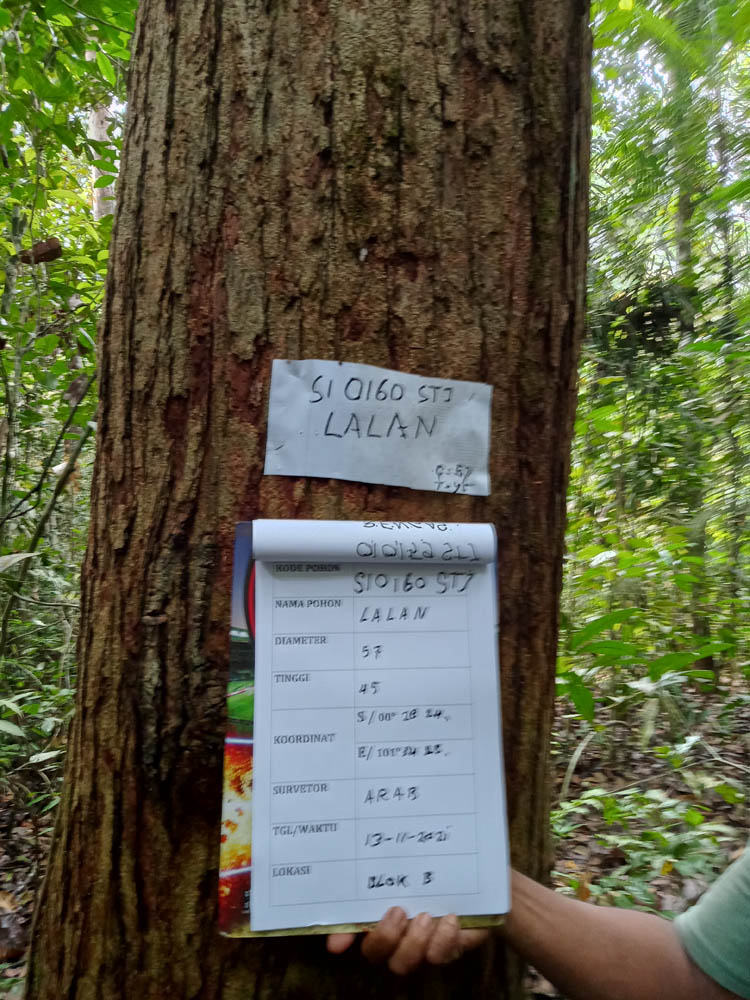 SI 0160 STJ
LALAN
T=45
KODE POHON SI0160 STJ
NAMA POHON LALAN
DIAMETER 57
TINGGI 45
KOORDINAT S/00°
E/101°
SURVEYOR ARAB
TGL/WAKTU 13-11-2021
LOKASI BLOK B